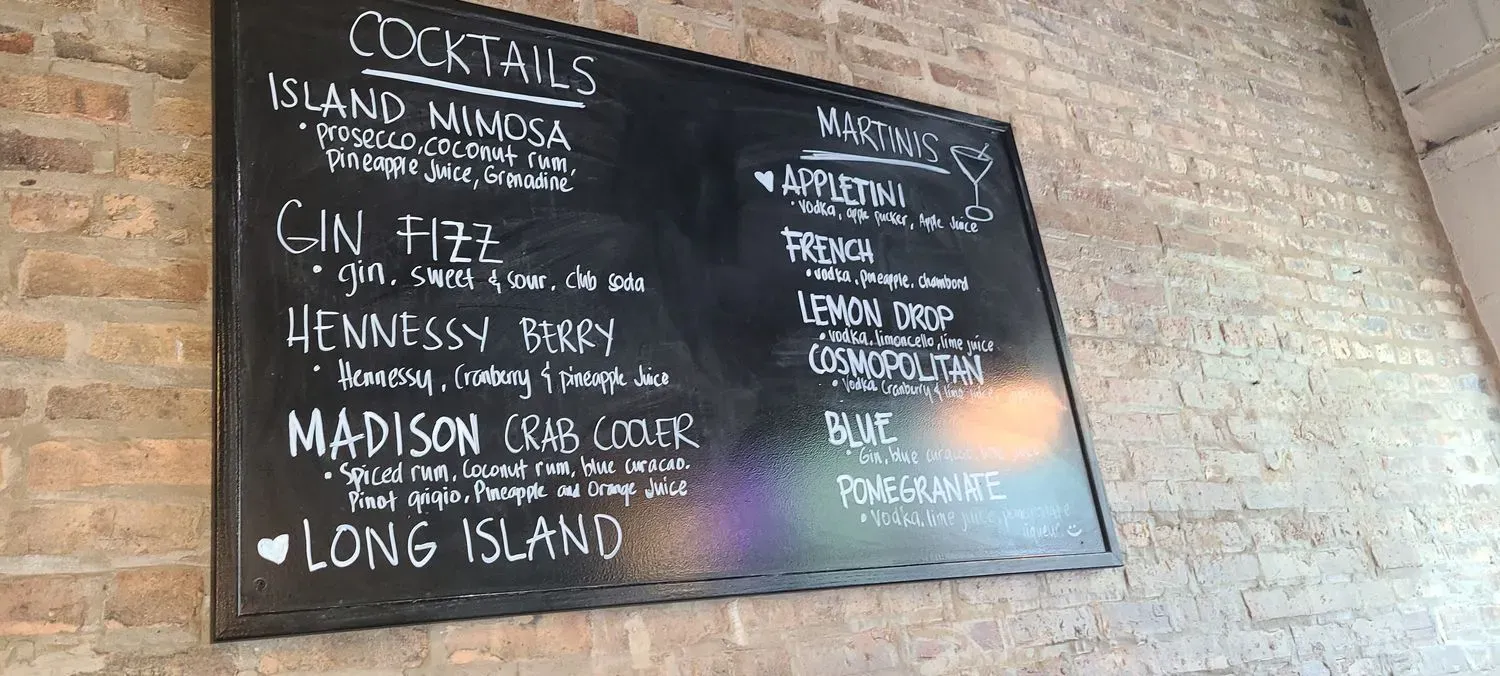 COCKTAILS
ISLAND MIMOSA
• prosecco, coconut rum,
pineapple Juice, Grenadine
GIN FIZZ
• gin, sweet & sour, club soda
HENNESSY BERRY
• Hennessy, Cranberry & pineapple Juice
MADISON CRAB COOLER
• Spiced rum, Coconut rum, blue curacao,
Pinot grigio, Pineapple and Orange Juice
♥ LONG ISLAND
MARTINIS
♥ APPLETINI
• Vodka, apple pucker, Apple Juice
FRENCH
• vodka, pineapple, chambord
LEMON DROP
• vodka, limoncello, lime juice
COSMOPOLITAN
• Vodka Cranberry & lime juice
BLUE
• Gin, blue curacao, juice
POMEGRANATE
• Vodka, lime juice, pomegranate
liqueur